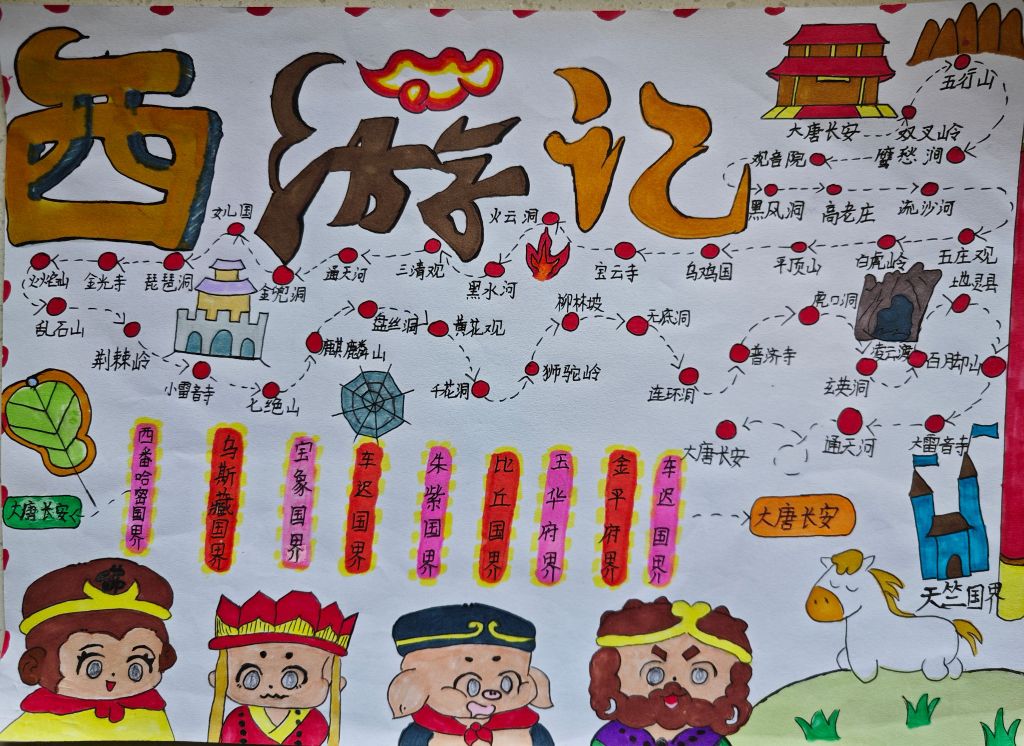 西游记
大唐长安
五行山
双叉岭
鹰愁涧
观音院
黑风洞
高老庄
流沙河
五庄观
白虎岭
平顶山
乌鸡国
宝云寺
火云洞
黑水河
三清观
通天河
金兜洞
女儿国
琵琶洞
金光寺
火焰山
乱石山
荆棘岭
小雷音寺
七绝山
麒麟山
盘丝洞
黄花观
千花洞
狮驼岭
柳林坡
无底洞
连环洞
普济寺
虎口洞
地灵县
凌云渡
百脚山
玄英洞
大雷音寺
通天河
大唐长安
大唐长安
西番哈密国界
乌斯藏国界
宝象国界
车迟国界
朱紫国界
比丘国界
玉华府界
金平府界
车迟国界
大唐长安
天竺国界